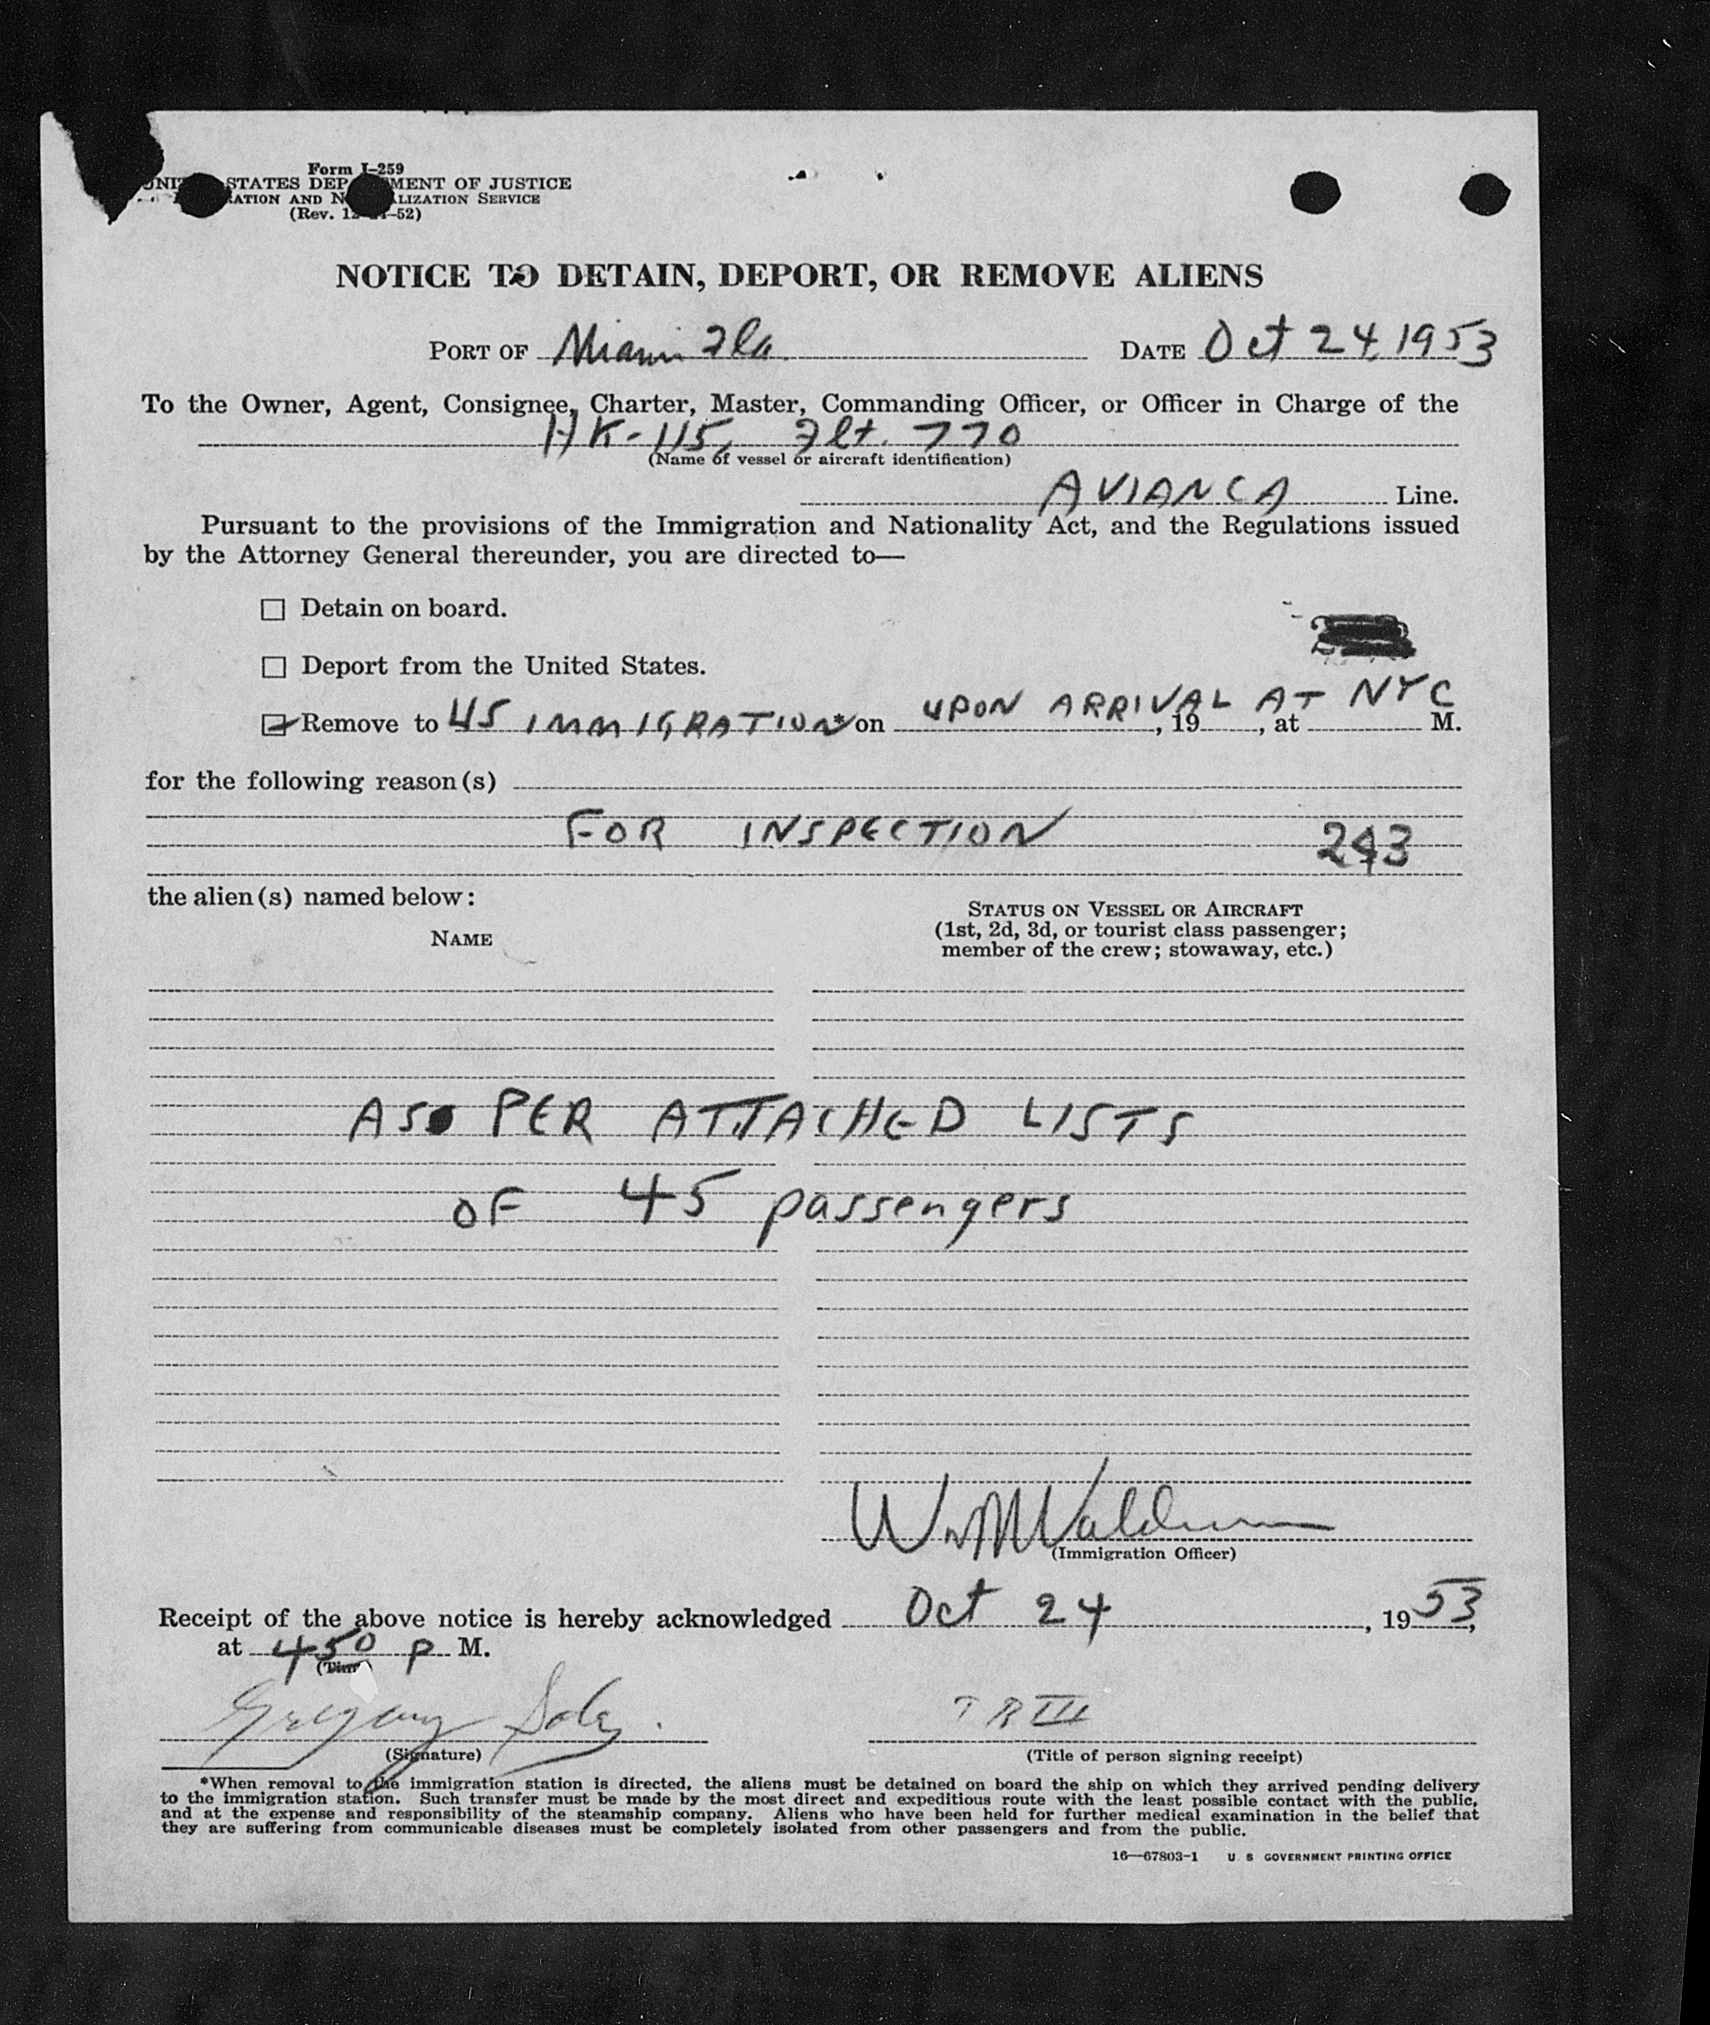 Form I-259
STATES DEP MENT OF JUSTICE
ATION AND N LIZATION SERVICE
(Rev. 12 -52)
NOTICE TO DETAIN, DEPORT, OR REMOVE ALIENS
PORT OF Miami Fla. DATE Oct 24, 1953
To the Owner, Agent, Consignee, Charter, Master, Commanding Officer, or Officer in Charge of the
HK-115, Flt. 770
(Name of vessel or aircraft identification)
AVIANCA Line.
Pursuant to the provisions of the Immigration and Nationality Act, and the Regulations issued
by the Attorney General thereunder, you are directed to—
Detain on board.
Deport from the United States.
Remove to US IMMIGRATION* on UPON ARRIVAL AT NYC, 19, at M.
for the following reason(s)
FOR INSPECTION 243
the alien(s) named below:
NAME
STATUS ON VESSEL OR AIRCRAFT
(1st, 2d, 3d, or tourist class passenger;
member of the crew; stowaway, etc.)
AS PER ATTACHED LISTS
OF 45 passengers
Wm
(Immigration Officer)
Receipt of the above notice is hereby acknowledged Oct 24, 1953,
at 450 P M.
(Time)
Gregory TR III
(Signature) (Title of person signing receipt)
*When removal to the immigration station is directed, the aliens must be detained on board the ship on which they arrived pending delivery
to the immigration station. Such transfer must be made by the most direct and expeditious route with the least possible contact with the public,
and at the expense and responsibility of the steamship company. Aliens who have been held for further medical examination in the belief that
they are suffering from communicable diseases must be completely isolated from other passengers and from the public.
16—67803-1 U S GOVERNMENT PRINTING OFFICE